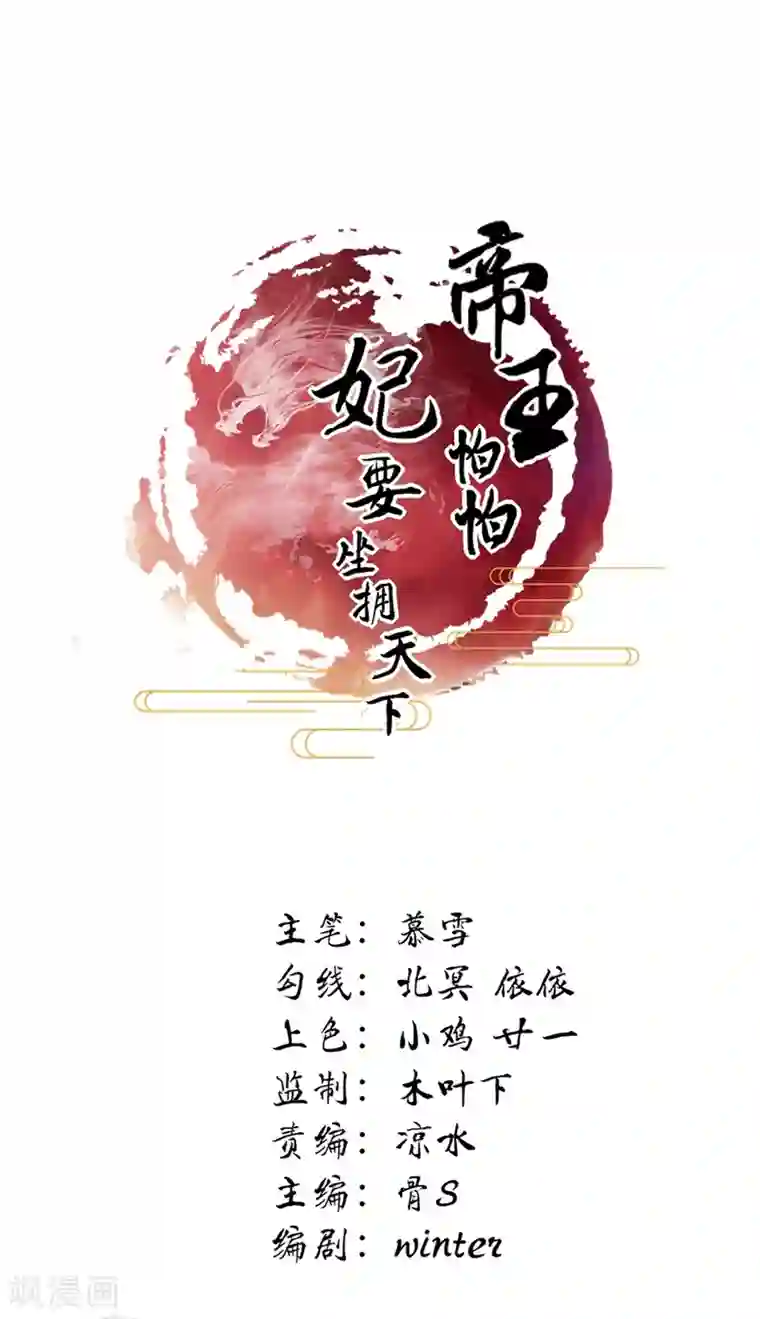 帝王怕怕
妃要坐拥天下
主笔：慕雪
勾线：北冥 依依
上色：小鸡 廿一
监制：木叶下
责编：凉水
主编：骨S
编剧：winter
飒漫画